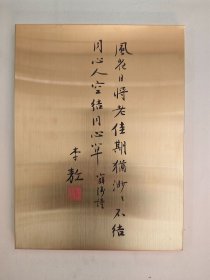 風花日將老佳期猶渺々不結
同心人空結同心草 薛濤詩
李敖